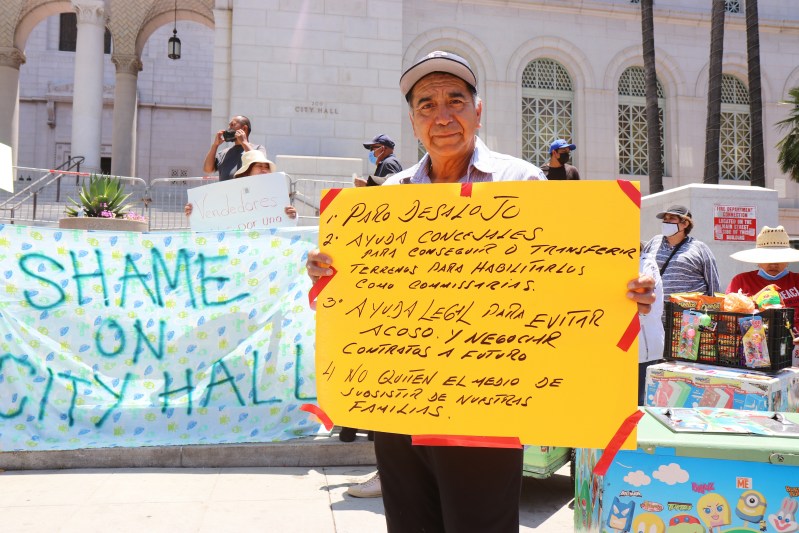 CITY HALL
Vendedores
por una
SHAME
ON
CITY HALL
1- PARO DESALOJO
2- AYUDA CONCEJALES
PARA CONSEGUIR O TRANSFERIR
TERRENOS PARA HABILITARLOS
COMO COMMISSARIAS.
3- AYUDA LEGAL PARA EVITAR
ACOSO. Y NEGOCIAR
CONTRATOS A FUTURO
4 NO QUITEN EL MEDIO DE
SUBSISTIR DE NUESTRAS
FAMILIAS.
FIRE DEPARTMENT
CONNECTION
ME